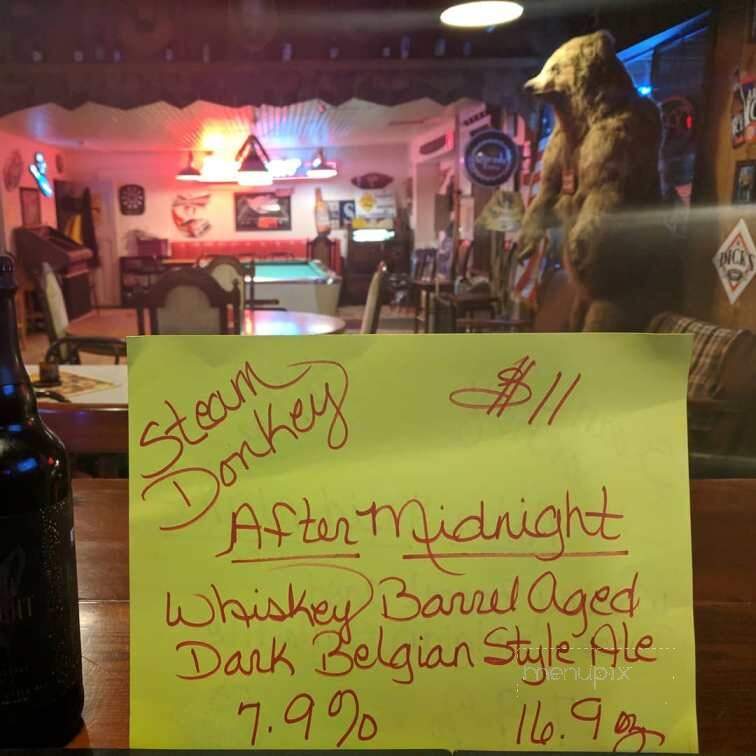 Steam
Donkey
$11
After Midnight
Whiskey Barrel Aged
Dark Belgian Style Ale
7.9%
16.9 oz
menupix
DICK'S